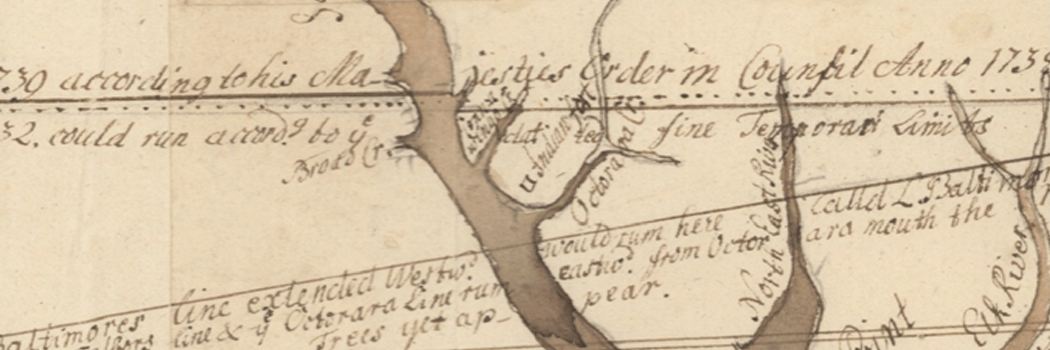 739 according to his Ma- jesties Order in Council Anno 1738
32. could run accordg. to ye fine Temporari Limits
Broad Cr.
Indian Fort
Octorara Cr.
North East River
Elk River
would rum here called L. Baltimor
eastwd. from Octor ara mouth the
pear.
line extended Westwd.
Baltimores line & ye Octorara Line rum
Trees yet ap-
Point